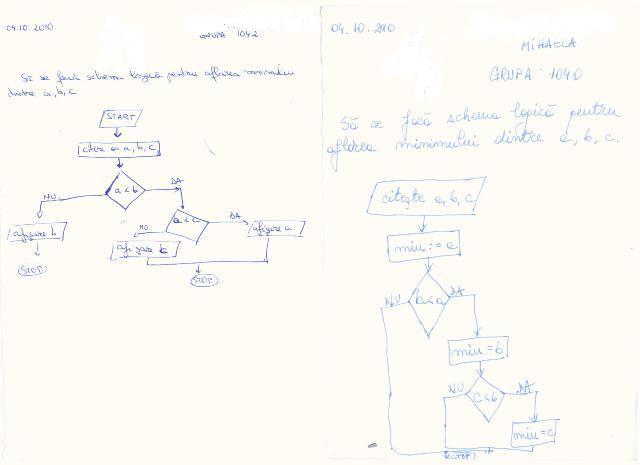 04.10.2010
GRUPA 1042
Să se facă schema logică pentru aflarea minimului
dintre a, b, c
START
citire a, b, c
a < b
NU
DA
afișare b
STOP
a < c
NO
DA
afișare c
afișare a
STOP
04.10.2010
MIHAELA
GRUPA 1040
Să se facă schema logică pentru
aflarea minimului dintre a, b, c.
citește a, b, c
min := a
b<a
NU
DA
min = b
c<b
NU
DA
min = c
STOP